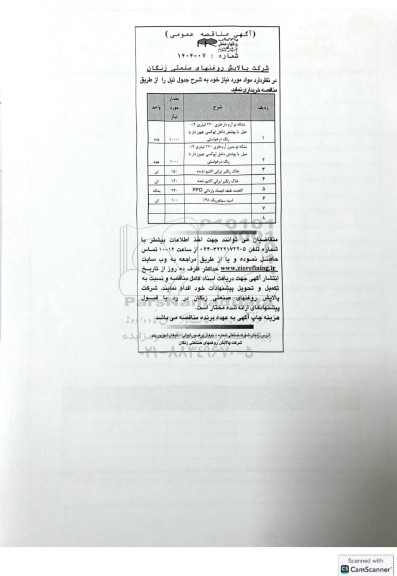 (آگهی مناقصه عمومی)
شماره : ۱۴۰۴-۰۷
شرکت پالایش روغنهای صنعتی زنگان
در نظر دارد مواد مورد نیاز خود به شرح جدول ذیل را از طریق
مناقصه خریداری نماید.
ردیف شرح مقدار مورد نیاز واحد
۱ بشکه نو آرم دار فلزی ۲۲۰ لیتری ۰/۹ میل با پوشش داخل اپوکسی چین دار با رنگ درخواستی ۱۰۰۰۰ عدد
۲ بشکه نو بدون آرم فلزی ۲۲۰ لیتری ۰/۹ میل با پوشش داخل اپوکسی چین دار با رنگ درخواستی ۱۰۰۰ عدد
۳ خاک رنگبر ایرانی اکتیو نشده ۱۵۰ تن
۴ خاک رنگبر ایرانی اکتیو شده ۱۲۰ تن
۵ کاهنده نقطه انجماد وارداتی PPD ۲۴۰ بشکه
۶ اسید سولفوریک ۹۸٪ ۱۰۰ تن
۷
۸
متقاضیان می توانند جهت اخذ اطلاعات بیشتر با
شماره تلفن ۵-۳۲۲۲۱۷۲۲-۰۲۴ از ساعت ۱۲-۱۰ تماس
حاصل نموده و یا از طریق مراجعه به وب سایت
www.ziorefining.ir حداکثر ظرف ده روز از تاریخ
انتشار آگهی جهت دریافت اسناد کامل مناقصه و نسبت به
تکمیل و تحویل پیشنهادات خود اقدام نمایند. شرکت
پالایش روغنهای صنعتی زنگان در رد یا قبول
پیشنهادهای ارائه شده مختار است.
هزینه چاپ آگهی به عهده برنده مناقصه می باشد.
شرکت پالایش روغنهای صنعتی زنگان
۰۲۱-۸۸۳۴۹۶۷۰-۵
Scanned with
CS CamScanner